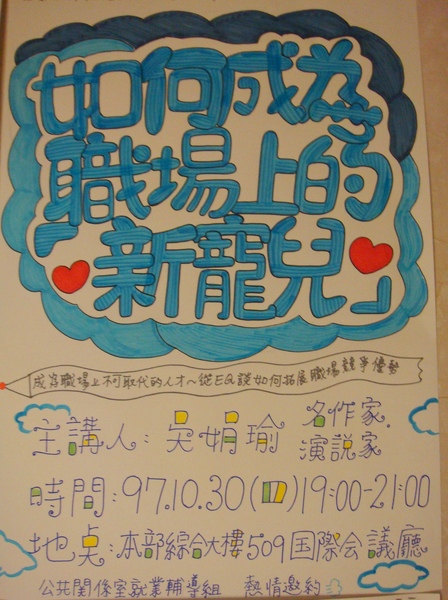 如何成為
職場上的
「新寵兒」
成為職場上不可取代的人才～從EQ談如何拓展職場競爭優勢
主講人：吳娟瑜 名作家.演說家
時間：97.10.30(四)19:00-21:00
地點：本部綜合大樓509国際会議廳
公共関係室就業輔導組 熱情邀約